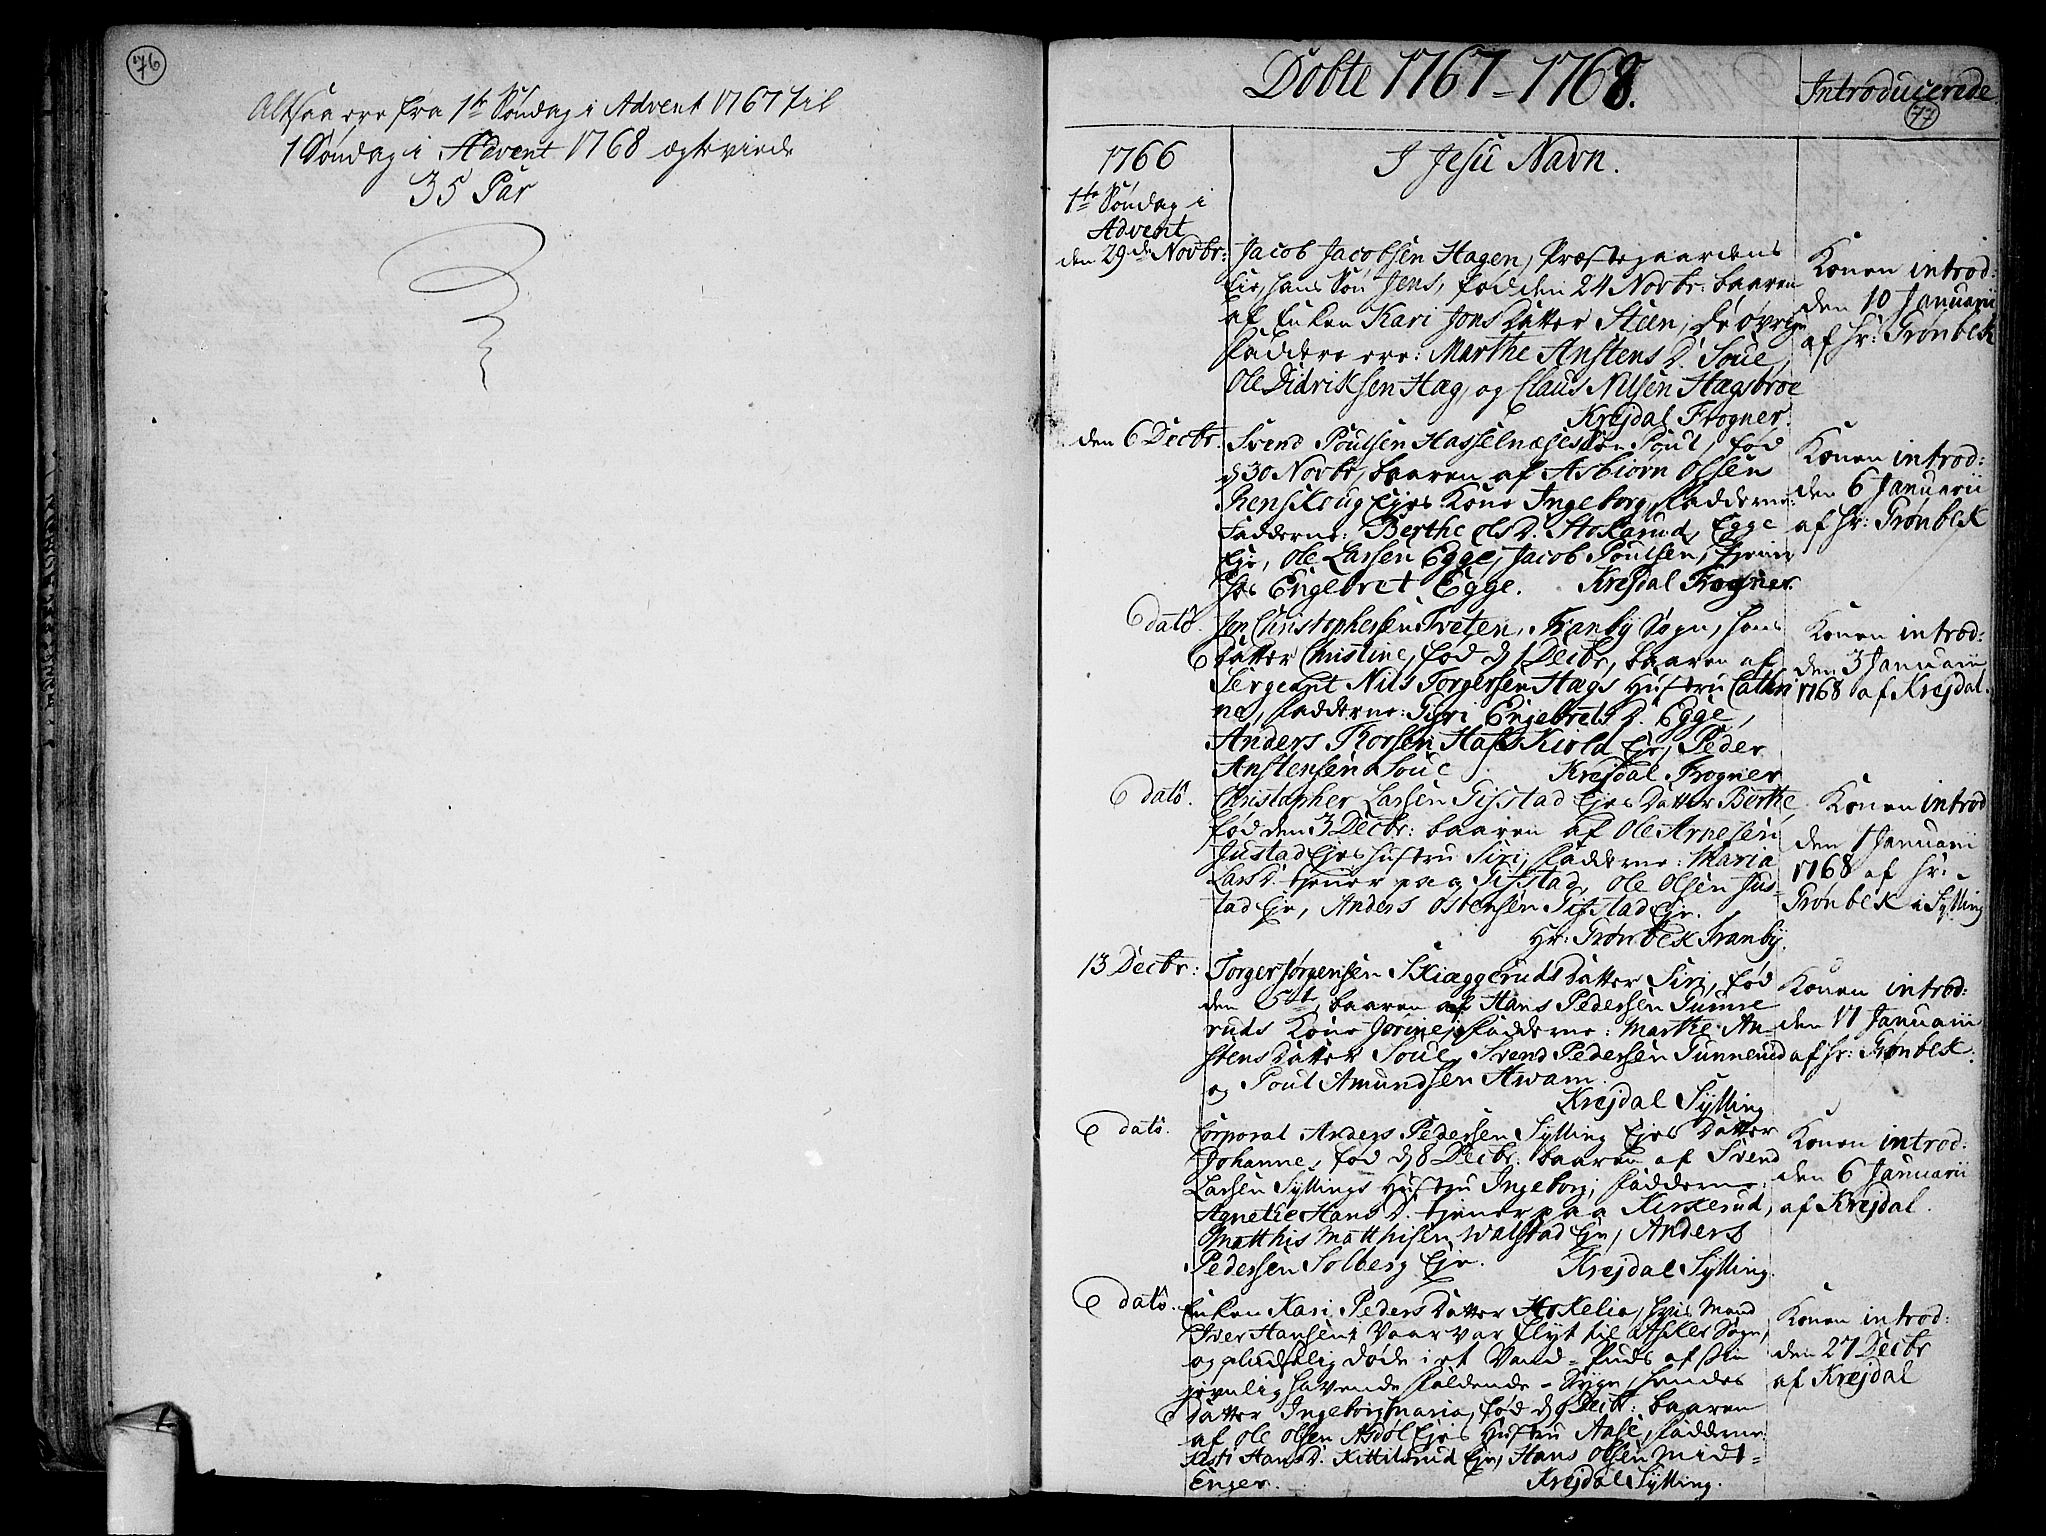 76
Altsaa ere fra 1te Søndag i Advent 1767 til
1 Søndag i Advent 1768 ægtevirde
35 Par
Døbte 1767-1768.
Introducerede
77
1766
1te Søndag i
Advent
den 29de Novbr:
I Jesu Navn.
Jacob Jacobsen Hagen, Præstegaardens
Eie, hans Søn Jens, fød den 24 Novbr: baaren
af Enken Kari Jons Datter Steen, de øvrige
Faddere ere: Marthe Anstens D. Soue,
Ole Didriksen Hæg, og Claus Nilsen Hægsbroe
Krejdal Frogner.
Konen introd:
den 10 Januarii
af Hr: Grønbek
den 6 Decbr.
Svend Poulsen Hasselnæses Søn Poul, fød
d 30 Novbr, baaren af Asbiørn Olsen
Eies Kone Ingeborg, Fadderne:
Fadderne: Berthe Ols D. Stokarud, Egge
Eje, Ole Larsen Egge, Jacob Poulsen, tjener
hos Engebret Egge. Krejdal Frogner.
Konen introd:
den 6 Januarii
af Hr: Grønbek
e dato.
Jon Christophersen Tveten, Tranby Sogn, hans
Datter Christine, fød d 1 Decbr, baaren af
Sergeant Nils Torgersen Hægs Hustru Cathri
ne, Fadderne: Siri Engebrets D. Egge,
Anders Thorsen Hafskiold Eje, Peder
Anstensen Soue Krejdal Frogner
Konen introd:
den 3 Januarii
1768 af Krejdal.
e dato.
Christopher Larsen Gifstad Ejes Datter Berthe,
fød den 3 Decbr: baaren af Ole Arnesen
Justad Ejes Hustru Siri, Fadderne: Maria
Lars D. tjener paa Gifstad, Ole Olsen Jus-
tad Eje, Anders Ostensen Gifstad Eje.
Hr: Grønbek Tranby.
Konen introd
den 1 Januarii
1768 af Hr:
Grønbek i Sylling
13 Decbr:
Torger Jørgensen Skiæggeruds Datter Siri, fød
den 5te, baaren af Hans Pedersen Gunne
ruds Kone Jørine, Fadderne: Marthe An-
stens Datter Soue, Svend Pedersen Gunnerud
og Poul Amundsen Hwam.
Krejdal Sylling
Konen introd:
den 17 Januarii
af Hr: Grønbek.
e dato.
Corporal Anders Pedersen Sylling Ejes Datter
Johanne, fød d 8 Decbr: baaren af Svend
Larsen Syllings Hustru Ingeborg, Fadderne
Agnethe Hans D. tjener paa Kirkerud,
Matthis Matthisen Walstad Eje, Anders
Pedersen Solberg Eje. Krejdal Sylling.
Konen introd:
den 6 Januarii
af Krejdal.
e dato.
Enken Kari Peders Datter Hokelia, hvis Mand
Iver Hansen i Vaar var flyt til Asker Sogn,
og pludselig døde i et Vand-Puds af sin
jevnlig havende faldende-Syge, hendes
Datter Ingeborg Maria, fød d 9 Decbr: baaren
af Ole Olsen Asdøl Ejes Hustru Aase, Fadderne
Kisti Hans D. Kittilsrud Eje, Hans Olsen Midt-
Enger. Krejdal Sylling.
Konen introd:
den 27 Decbr
af Krejdal